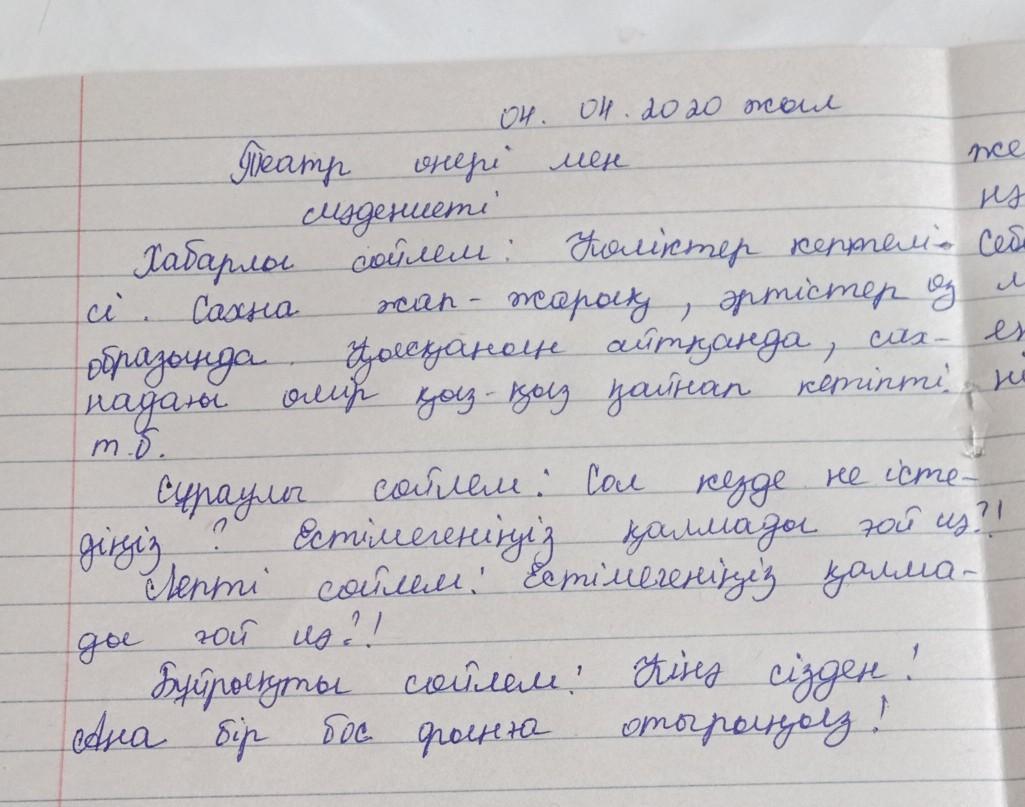 04. 04. 2020 жыл
Театр өнері мен же
мәдениеті нә
Хабарлы сөйлем: Көліктер кептелі- Себ
сі. Сахна жап-жарық, әртістер өз м
образында. Қысқасын айтқанда, сах- ен
надағы өмір қыз-қыз қайнап кетіпті. ні
т.б.
Сұраулы сөйлем: Сол кезде не істе-
діңіз? Естімегеніңіз қалмады ғой иә?!
Лепті сөйлем: Естімегеніңіз қалма-
ды ғой иә?!
Бұйрықты сөйлем: Кінә сізден!
Ана бір бос орынға отырыңыз!